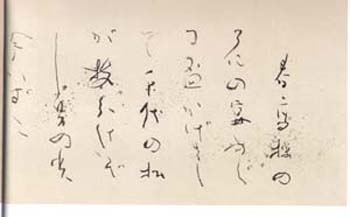 春高楼の
の宴めぐ
る盃かげさし
て千代の松
が枝わけいで
し昔の光